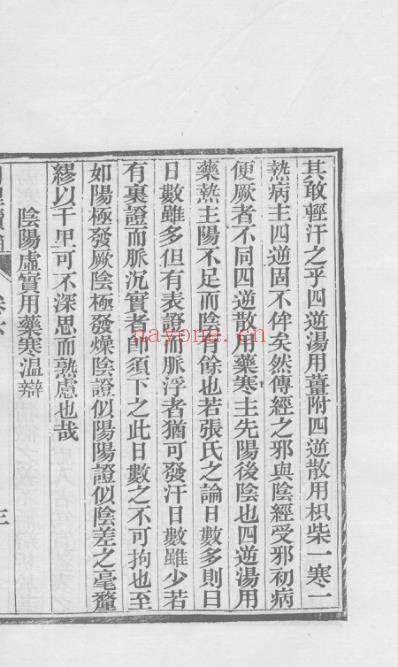 其敢輕汗之乎四逆湯用薑附四逆散用枳柴一寒一
熱病主四逆固不侔矣然傳經之邪與陰經受邪初病
便厥者不同四逆散用藥寒主先陽後陰也四逆湯用
藥熱主陽不足而陰有餘也若張氏之論日數多則曰
日數雖多但有表證而脈浮者猶可發汗日數雖少若
有裏證而脈沉實者即須下之此日數之不可拘也至
如陽極發厥陰極發燥陰證似陽陽證似陰差之毫釐
繆以千里可不深思而熟慮也哉
陰陽虛實用藥寒溫辯
卷六
三
nayona.cn